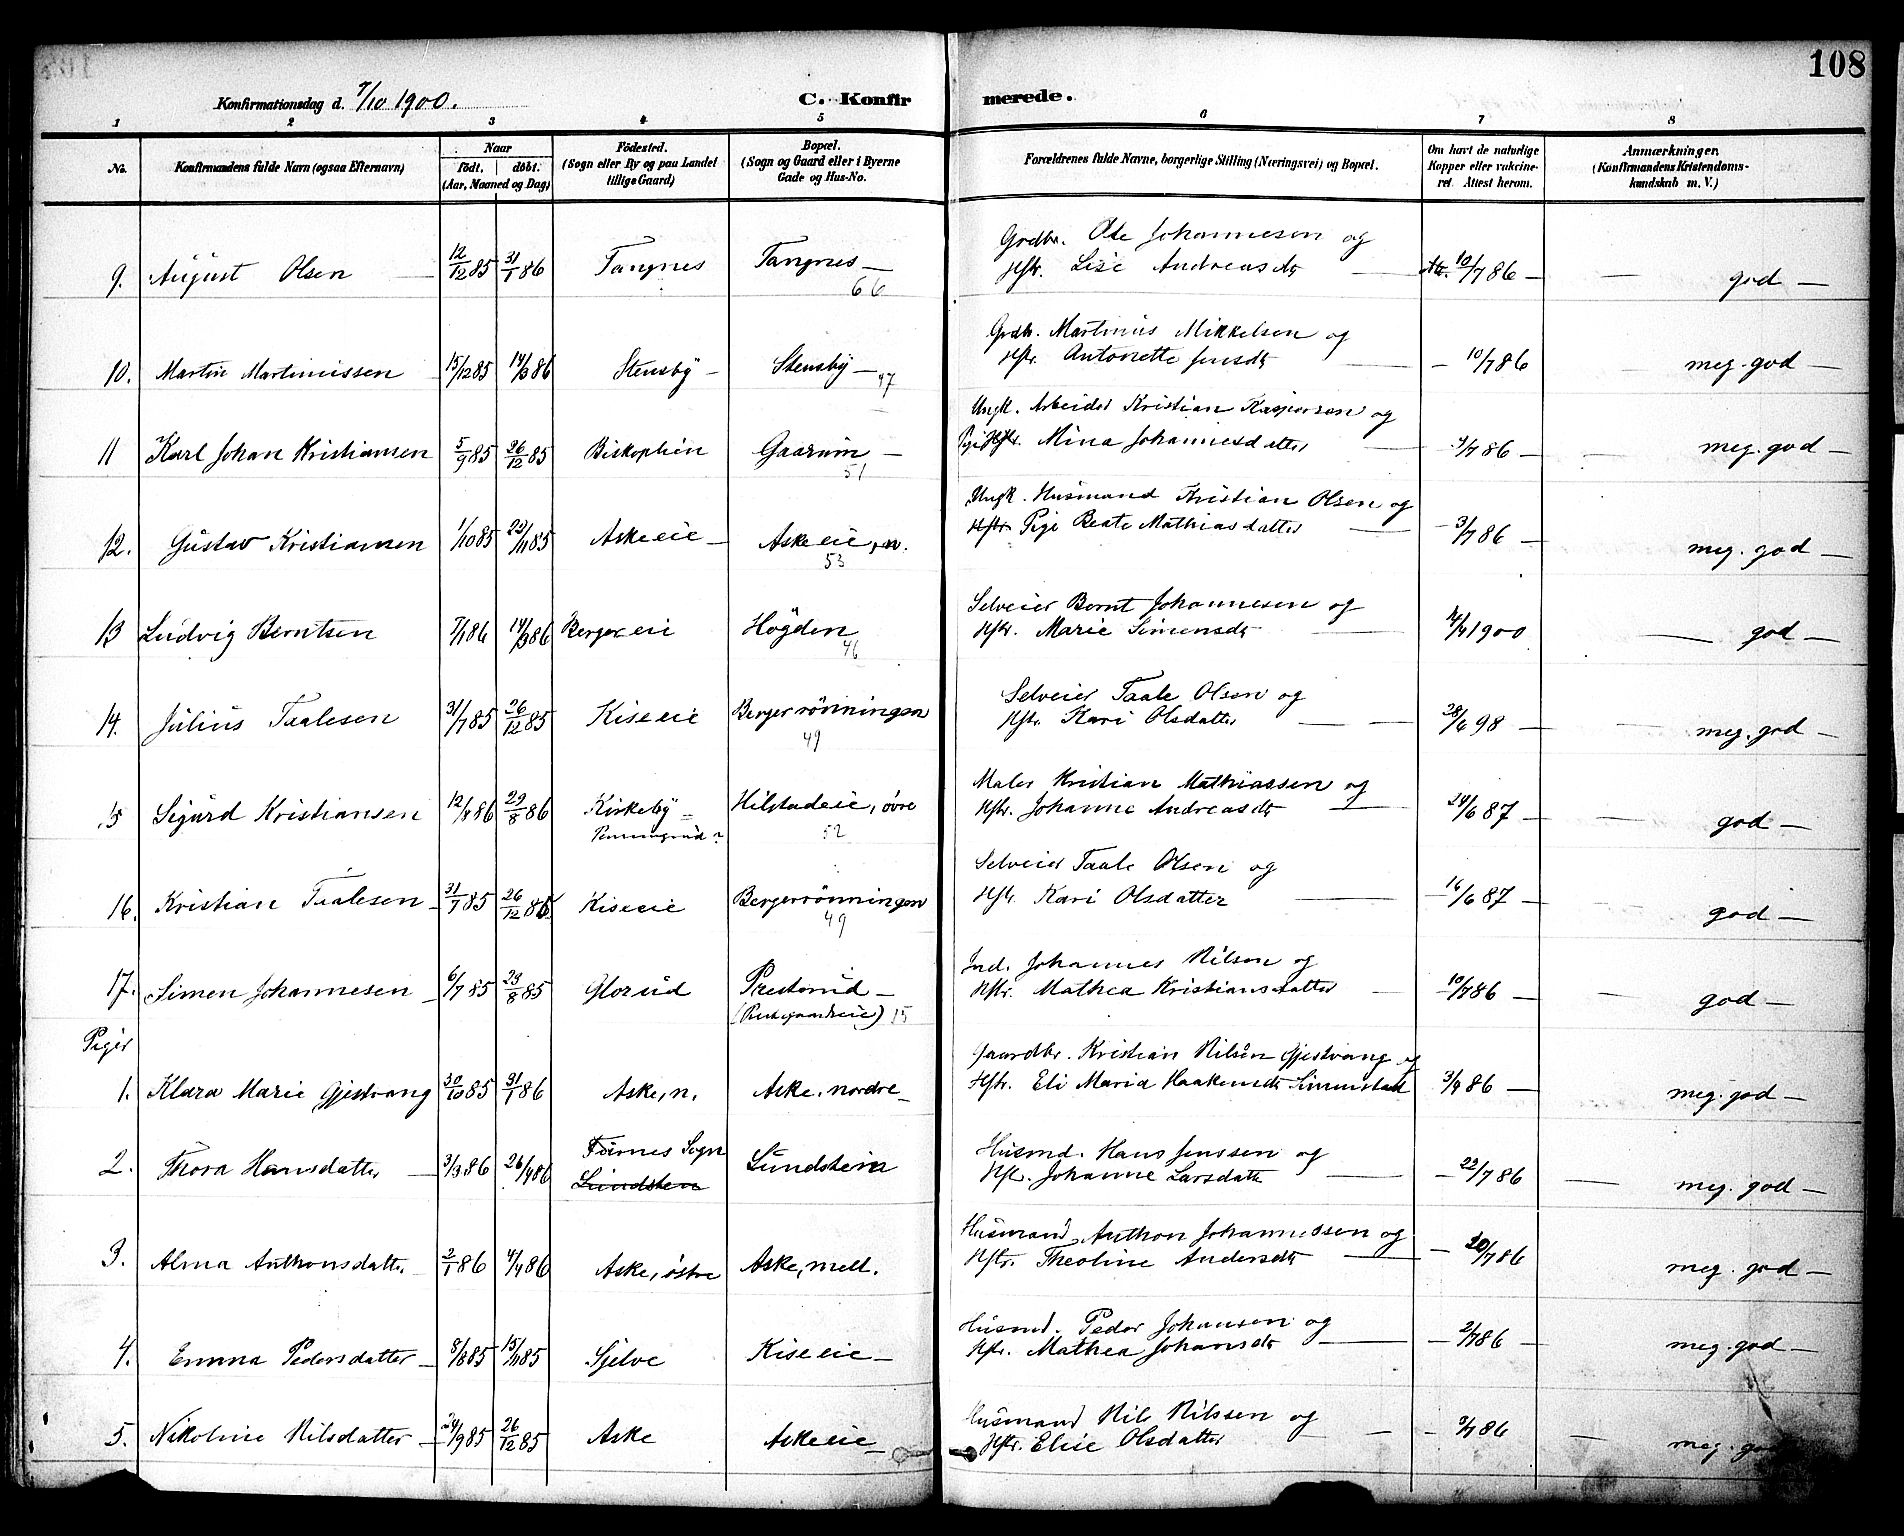 108
Konfirmationsdag d. 7/10 1900.
C. Konfirmerede.
1 2 3 4 5 6 7 8
No. Konfirmandens fulde Navn (ogsaa Efternavn) Naar født, døbt. (Aar, Maaned og Dag) Fødested. (Sogn eller By og paa Landet tillige Gaard) Bopæl. (Sogn og Gaard eller i Byerne Gade og Hus-No. Forældrenes fulde Navne, borgerlige Stilling (Næringsvei) og Bopæl. Om havt de naturlige Kopper eller vakcineret. Attest herom. Anmærkninger. (Konfirmandens Kristendomskundskab m. V.)
9. August Olsen 12/12 85 31/1 86 Tangnes Tangnes 66 Grdbr. Ole Johannesen og Hstr. Lise Andreasdtr Att. 10/7 86 god
10. Martin Martiniussen 15/12 85 14/3 86 Stensby Stensby 47 Grdbr. Martinus Mikkelsen og Hstr. Antonette Jensdtr 10/7 86 meg. god
11 Karl Johan Kristiansen 5/9 85 26/12 85 Biskoplien Gaarum 51 Ungk. Arbeider Kristian Kaspersen og Pige Hstr. Mina Johannesdatter 4/7 86 meg. god
12. Gustav Kristiansen 1/10 85 22/11 85 Askeeie Askeeie, n. 53 Ungk. Husmand Kristian Olsen og Hstr Pige Beate Mathiasdatter 3/7 86 meg. god
13 Ludvig Berntsen 7/1 86 14/3 86 Bergereie Høgden 46 Selveier Bernt Johannesen og Hstr. Marie Simensdtr 1900 god
14. Julius Taalesen 31/7 85 26/12 85 Kiseeie Bergerrønningen 49 Selveier Taale Olsen og Hstr. Kari Olsdatter 28/6 98 meg. god
15 Sigurd Kristiansen 12/4 86 29/8 86 Kirkeby Penningrud? Hilstadeie, øvre 52 Maler Kristian Mathiassen og Hstr. Johanne Andreasdtr 24/6 87 god
16. Kristian Taalesen 31/7 85 26/12 85 Kiseeie Bergerrønningen 49 Selveier Taale Olsen og Hstr Kari Olsdatter 16/6 87 god
17. Simen Johannesen 6/7 85 23/8 85 Glorud Presterud (Prestegaardseie) 15 Ind. Johannes Nilsen og Hstr. Mathea Kristiansdatter 10/7 86 god
Piger
1. Klara Marie Gjestvang 30/10 85 31/1 86 Aske, n. Aske, nordre Gaardbr. Kristian Nilsen Gjestvang og Hstr. Eli Maria Haakensdtr 3/7 86 meg. god
2. Thora Hansdatter 3/3 86 26/4 86 Furnes Sogn Lundsten Lundstein Husmd. Hans Jenssen og Hstr. Johanne Larsdatter 22/7 86 meg. god
3. Alma Anthonsdatter 2/1 86 4/4 86 Aske, østre Aske, mell. Husmand Anthon Johannessen og Hstr. Theoline Andersdtr 20/7 86 meg. god
4. Emma Pedersdatter 8/8 85 15/11 85 Sjelve Kiseeie Husmd. Peder Johansen og Hstr. Mathea Johansdtr 2/7 86 meg. god
5. Nikoline Nilsdatter 24/9 85 26/12 85 Aske Askeeie Husmand Nils Nilssen og Hstr. Elise Olsdatter 86 meg. god